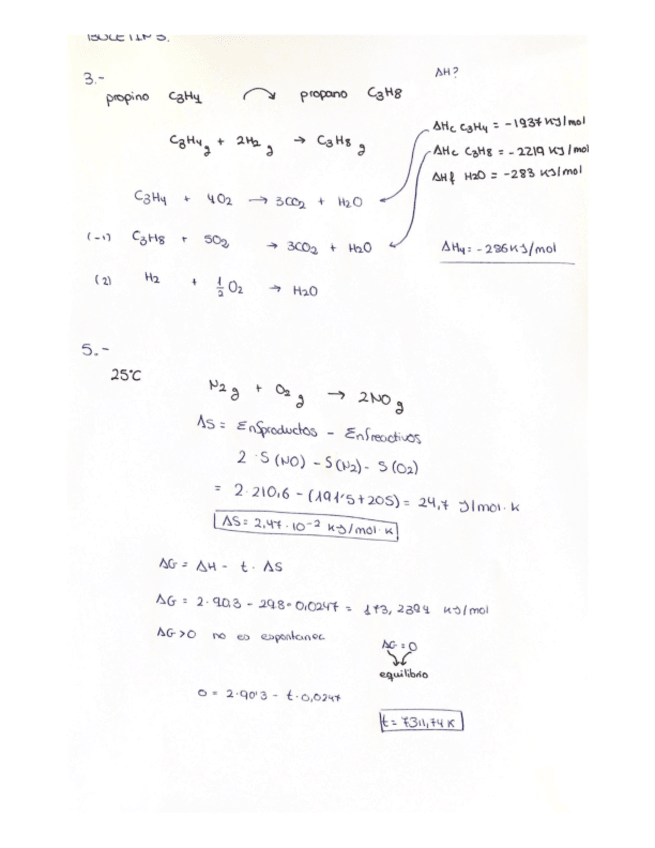 BOLETIN 5.
3.-
ΔH?
propino C3H4 propano C3H8
C3H4 g + 2H2 g → C3H8 g
ΔHc C3H4 = -1937 KJ/mol
ΔHc C3H8 = -2219 KJ/mol
ΔHf H2O = -283 KJ/mol
C3H4 + 4O2 → 3CO2 + H2O
(-1) C3H8 + 5O2 → 3CO2 + H2O
ΔH4 = -286 KJ/mol
(2) H2 + 1/2 O2 → H2O
5.-
25°C
N2 g + O2 g → 2NO g
ΔS = EnSproductos - EnSreactivos
2 · S (NO) - S(N2) - S (O2)
= 2·210,6 - (191'5 + 205) = 24,7 J/mol·k
ΔS = 2,47·10-2 kJ/mol·k
ΔG = ΔH - t · ΔS
ΔG = 2·90,3 - 298·0,0247 = 173,2394 KJ/mol
ΔG>0 no es espontanec
ΔG = 0
equilibrio
0 = 2·90'3 - t·0,0247
t = 7311,74 K